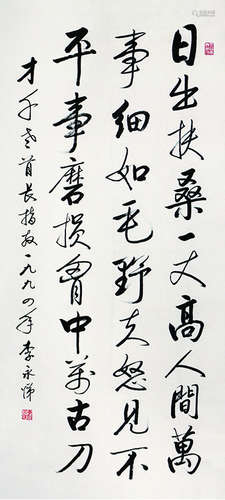 日出扶桑一丈高人間萬
事細如毛野夫怒見不
平事磨損胷中萬古刀
才千老首長指教一九九四年李永悌